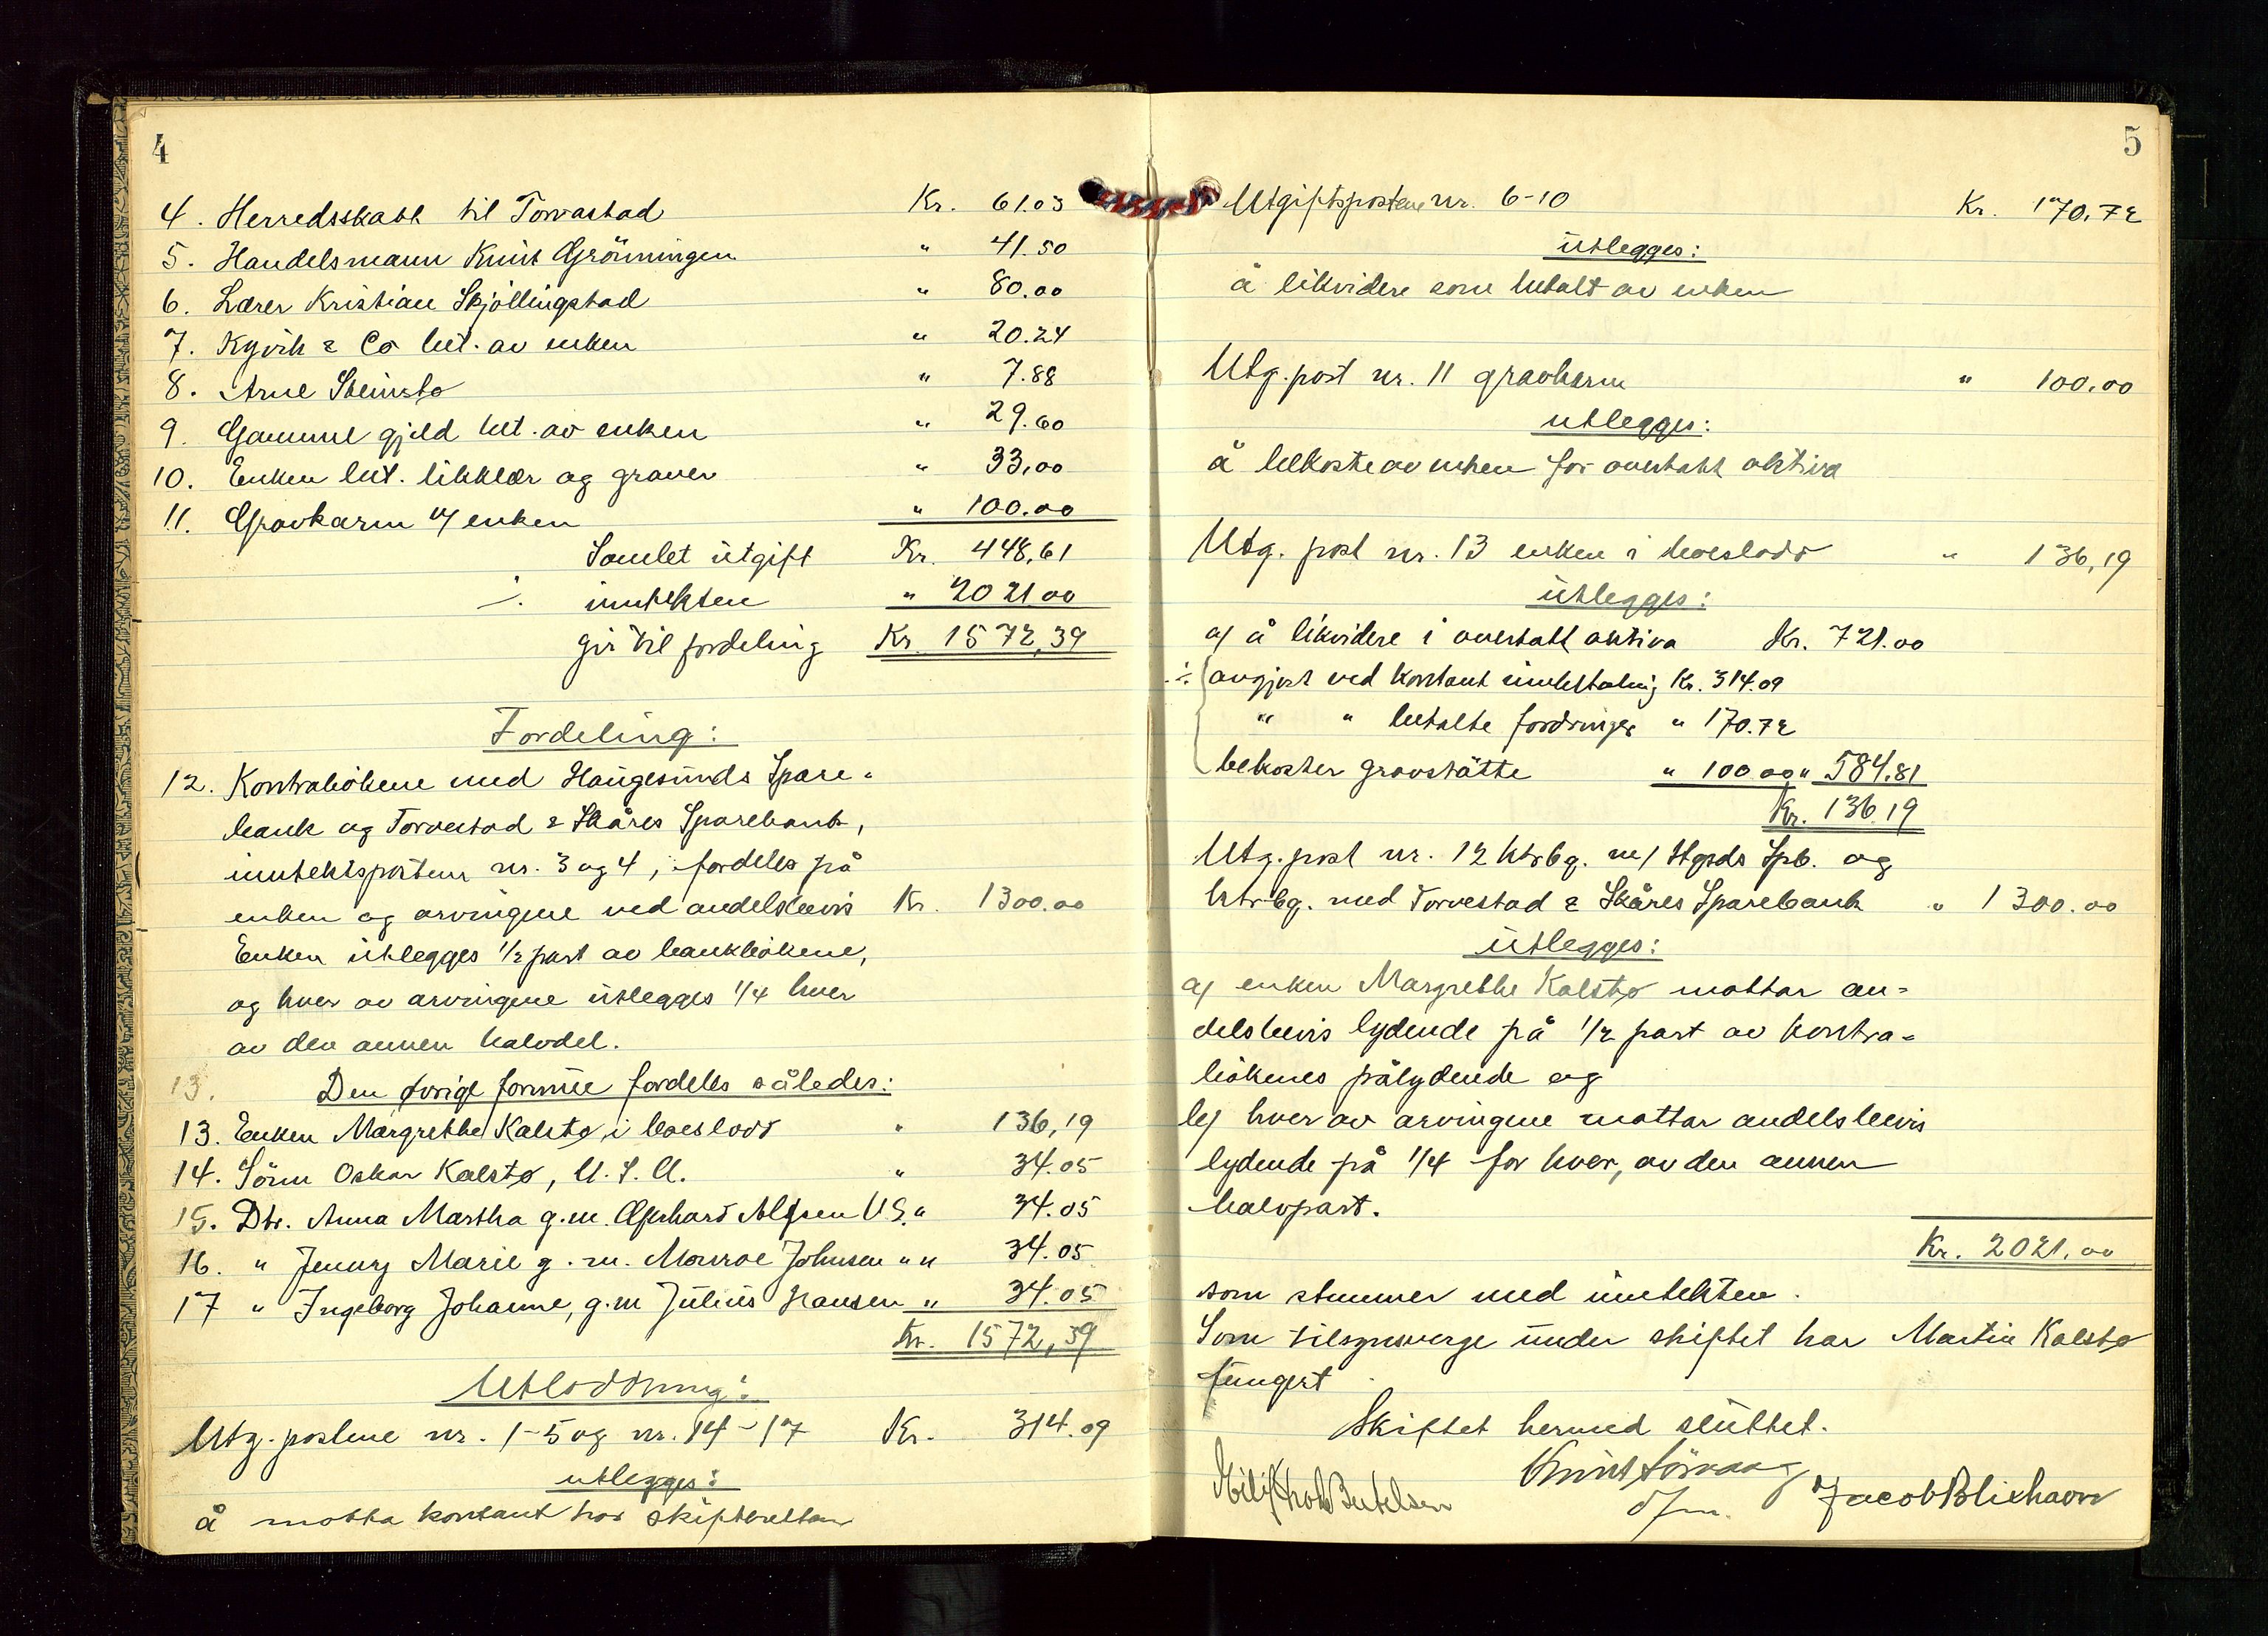 4
4. Herredsskatt til Torvastad Kr. 61.03
5. Handelsmann Knut Grönningen " 41.50
6. Lærer Kristian Skjöllingstad " 80.00
7. Kyvik & Co bet. av enken " 20.24
8. Arne Steinsto " 7.88
9. Gammel gjeld bet. av enken " 29.60
10. Enken bet. likklær og graver " 33,00
11. Gravkarm v/ enken " 100.00
Samlet utgift Kr. 448,61
÷ inntekten " 2021.00
gir til fordeling Kr. 1572,39
Fordeling:
12. Kontrabökene med Haugesunds Spare-
bank og Torvestad & Skåres Sparebank,
inntektsposten nr. 3 og 4, fordeles på
enken og arvingene ved andelsbevis Kr. 1300.00
Enken utlegges 1/2 part av bankbökene,
og hver av arvingene utlegges 1/4 hver
av den annen halvdel.
13. Den øvrige formue fordeles således:
13. Enken Margrethe Kalstø, i boeslodd " 136,19
14. Sönn Oskar Kalstø, U.S.A. " 34.05
15. Dtr. Anna Martha g.m. Gerhard Alfsen U.S. " 34.05
16. " Jenny Marie g.m. Monroe Johnsen " " 34.05
17 " Ingeborg Johanne, g.m Julius Hansen " 34.05
Kr. 1572,39
Utloddning:
Utg. postene nr. 1-5 og nr. 14-17 Kr. 314.09
utlegges:
å motta kontant hos skifteretten
5
Utgiftspostene nr. 6-10 Kr. 170,72
utlegges:
å likvidere som betalt av enken
Utg. post nr. 11 gravkarm " 100.00
utlegges:
å bekoste av enken for overtatt aktiva
Utg. post nr. 13 enken i boeslodd " 136,19
utlegges:
a) å likvidere i overtatt aktiva Kr. 721.00
÷ avgjort ved kontant innbetaling Kr. 314.09
" " betalte fordringer " 170.72
bekoster gravstätte " 100.00 " 584,81
Kr. 136.19
Utg. post nr. 12 ktrbg. m/ Hgsds Spb. og
ktrbg. med Torvestad & Skåres Sparebank " 1300.00
utlegges:
a) enken Margrethe Kalstø mottar an=
delsbevis lydende på 1/2 part av kontra=
bökenes pålydende og
b) hver av arvingene mottar andelsbevis
lydende på 1/4 for hver, av den annen
halvpart.
Kr. 2021.00
som stemmer med inntekten.
Som tilsynsverge under skiftet har Martin Kalstø
fungert
Skiftet hermed sluttet.
Knut
Bertelsen
Jacob Blikhavn